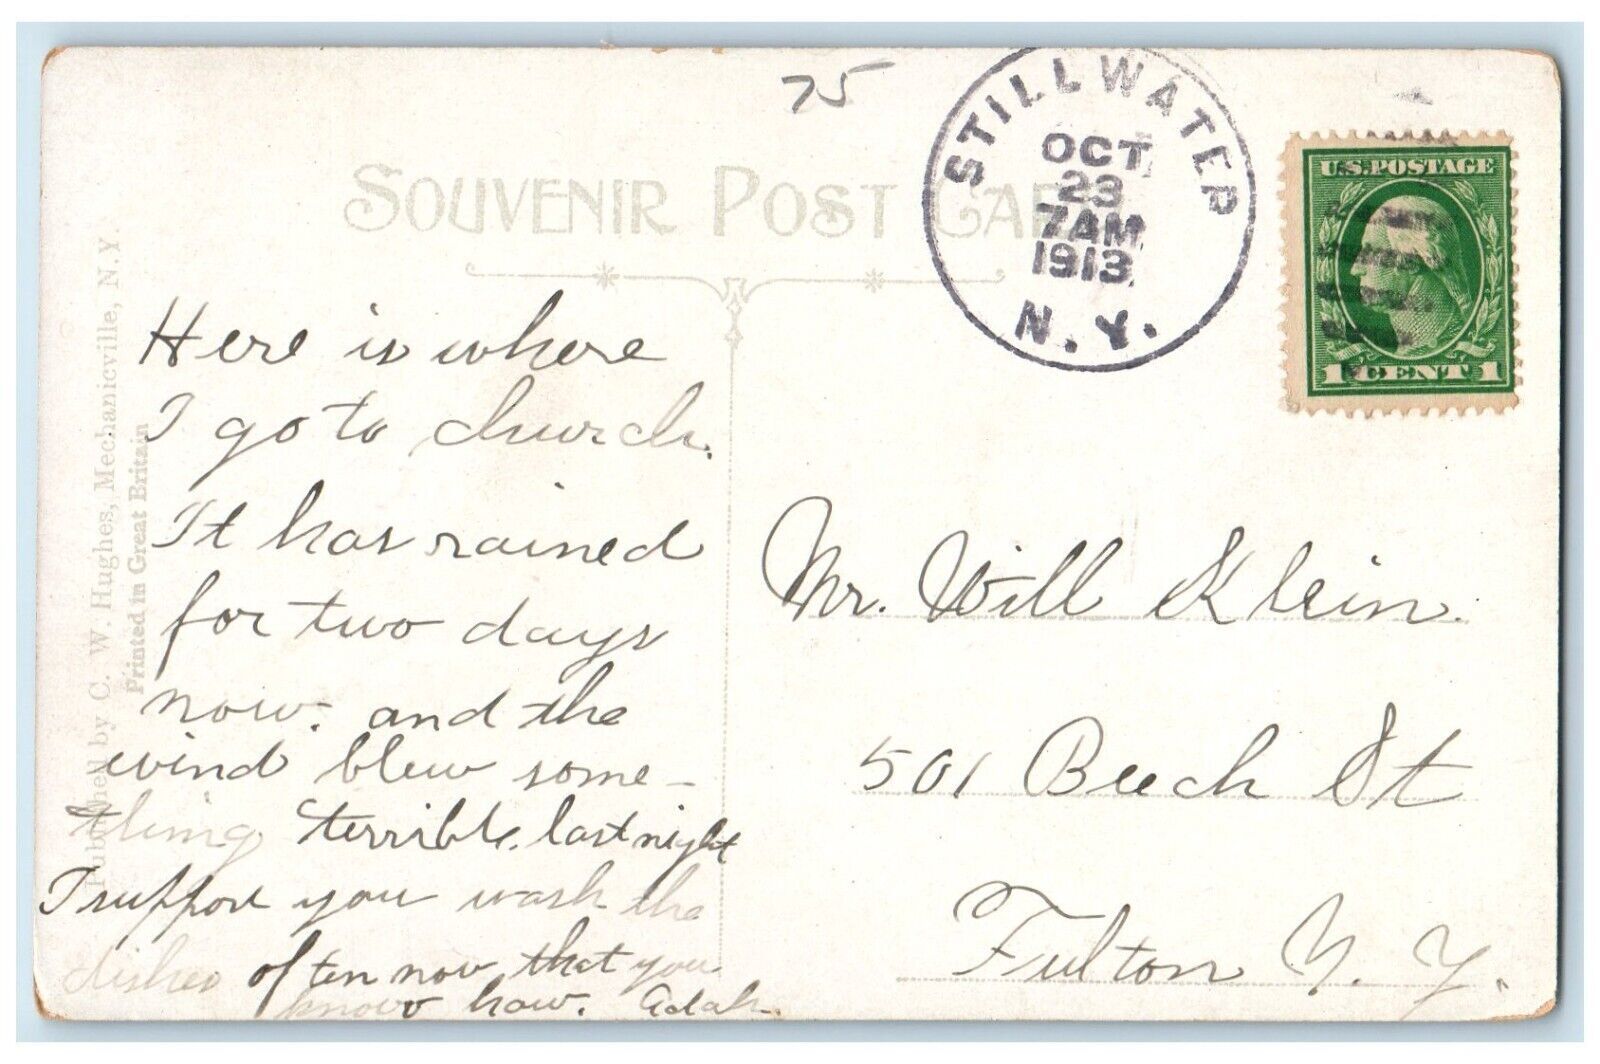 75
SOUVENIR POST CAR
STILLWATER
OCT
23
7 AM
1913
N.Y.
U.S. POSTAGE
1 CENT 1
Published by C. W. Hughes, Mechanicville, N. Y.
Printed in Great Britain
Here is where
I go to church.
It has rained
for two days
now. and the
wind blew some-
thing terrible, last night
I suppose you wash the
dishes often now that you
know how. Adah.
Mr. Will Klein.
501 Beech St
Fulton N. Y.